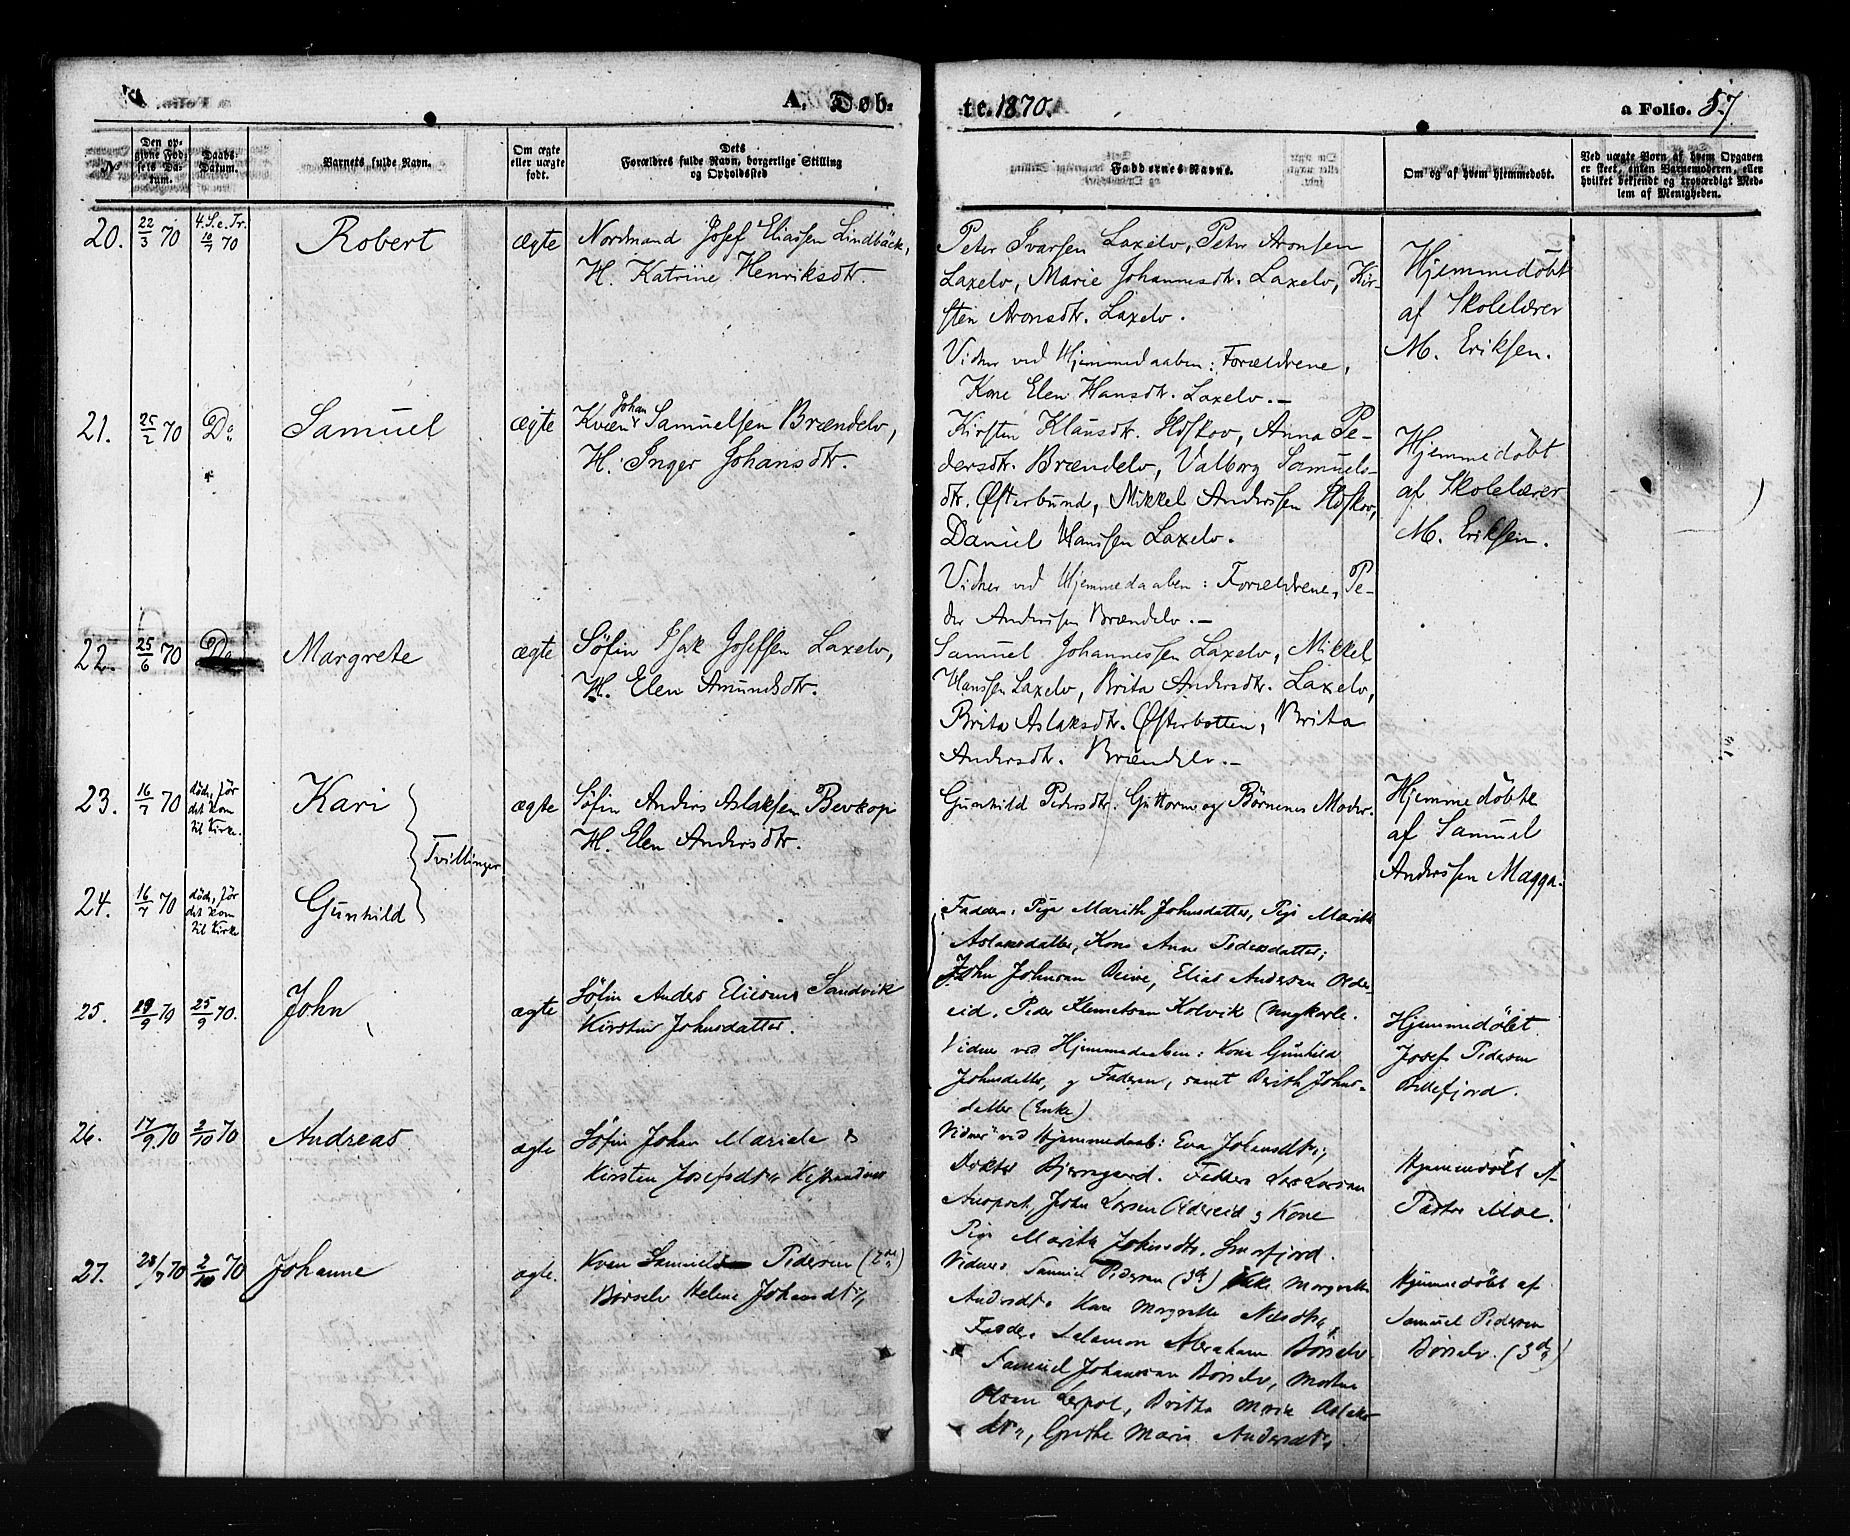 A. Døb-
te. 1870.
a Folio. 57
№
Den opgivne Fødsels Datum.
Daabs-Datum.
Barnets fulde Navn.
Om ægte eller uægte født.
Dets Forældres fulde Navn, borgerlige Stilling og Opholdssted
Faddernes Navne.
Om og af hvem hjemmedøbt.
Ved uægte Børn af hvem Opgaven er skeet, enten Barnemoderen, eller hvilket bekjendt og troværdigt Medlem af Menigheden.
20. 22/3 70 4.S.e.Tr. 10/7 70 Robert ægte Nordmand Josef Eliassen Lindbäck,
H. Katrine Henriksdtr.
Peter Ivarsen Laxelv, Peter Aronsen
Laxelv, Marie Johannesdtr. Laxelv, Kir-
sten Aronsdtr. Laxelv.
Vidner ved Hjemmedaaben: Forældrene,
Kone Elen Hansdtr. Laxelv.—
Hjemmedøbt
af Skolelærer
M. Eriksen.
21. 25/2 70 Do Samuel ægte Kvæn Johan Samuelsen Brændelv,
H. Inger Johansdtr.
Kirsten Klausdtr. Hoskov, Anna Pe-
dersdtr. Brændelv, Valborg Samuels-
dtr. Østerbund, Mikkel Anderssen Hoskov,
Daniel Hanssen Laxelv.
Vidner ved Hjemmedaaben: Forældrene, Pe-
der Anderssen Brændelv.—
Hjemmedøbt
af Skolelærer
M. Eriksen.
22. 25/6 70 Do Margrete ægte Søfin Isak Josefsen Laxelv,
H. Elen Amundsdtr.
Samuel Johannessen Laxelv, Mikkel
Hanssen Laxelv, Brita Andersdtr. Laxelv,
Brita Aslaksdtr. Østerbotten, Brita
Andersdtr. Brændelv.—
23. 16/7 70 død, før
det kom
til Kirke. Kari ægte Søfin Anders Aslaksen Bevkop
H. Elen Andersdtr.
Tvillinger
Gunhild Pedersdtr. Guttorm og Børnenes Moder.
Hjemmedøbte
af Samuel
Anderssen Magga.
24. 16/7 70 død, før
det kom
til Kirke Gunhild
Faddere: Pige Marith Johnsdatter, Pige Marith
Aslaksdatter, Kone Anne Pedersdatter;
John Johnsen Beive, Elias Andersen Older-
eid, Peder Klemetsen Kolvik (Ungkarle.
Vidner ved Hjemmedaaben: Kone Gunhild
Johnsdatter, og Faderen, samt Berith Johns-
datter (Enke)
25. 9/9 70 25/9 70. John ægte Søfin Anders Eliesens Sandvik
Kirstine Johnsdatter.
Hjemmedøbt
Josef Pedersen
Billefjord.
26. 17/9 70 2/10 70 Andreas ægte Søfin Johan Mariele &
Kirsten Josefsdtr Kistrand
Vidner ved Hjemmedaab: Eva Johansdtr,
Doktor Bjerregaard. Faddere Lars Larsen
John Larsen Oldereid og Kone
Pige Marith Johnsdtr. Smørfjord.
Hjemmedøbt af
Pastor Moe.
27. 28/7 70 2/10 70 Johanne ægte. Kvæn Samuel Pedersen (2den)
Børselv Helene Johansdtr
Vidner: Samuel Pedersen (3die) Margrethe
Andersdtr Kone Margrethe Nilsdtr,
Faddere Salamon Abraham Børselv
Samuel Johansen Børselv, Morten
Olsen Leirpol, Britha Maria Aslaks-
dtr, Grethe Maria Andersdtr.
Hjemmedøbt af
Samuel Pedersen
Børselv. (3die)